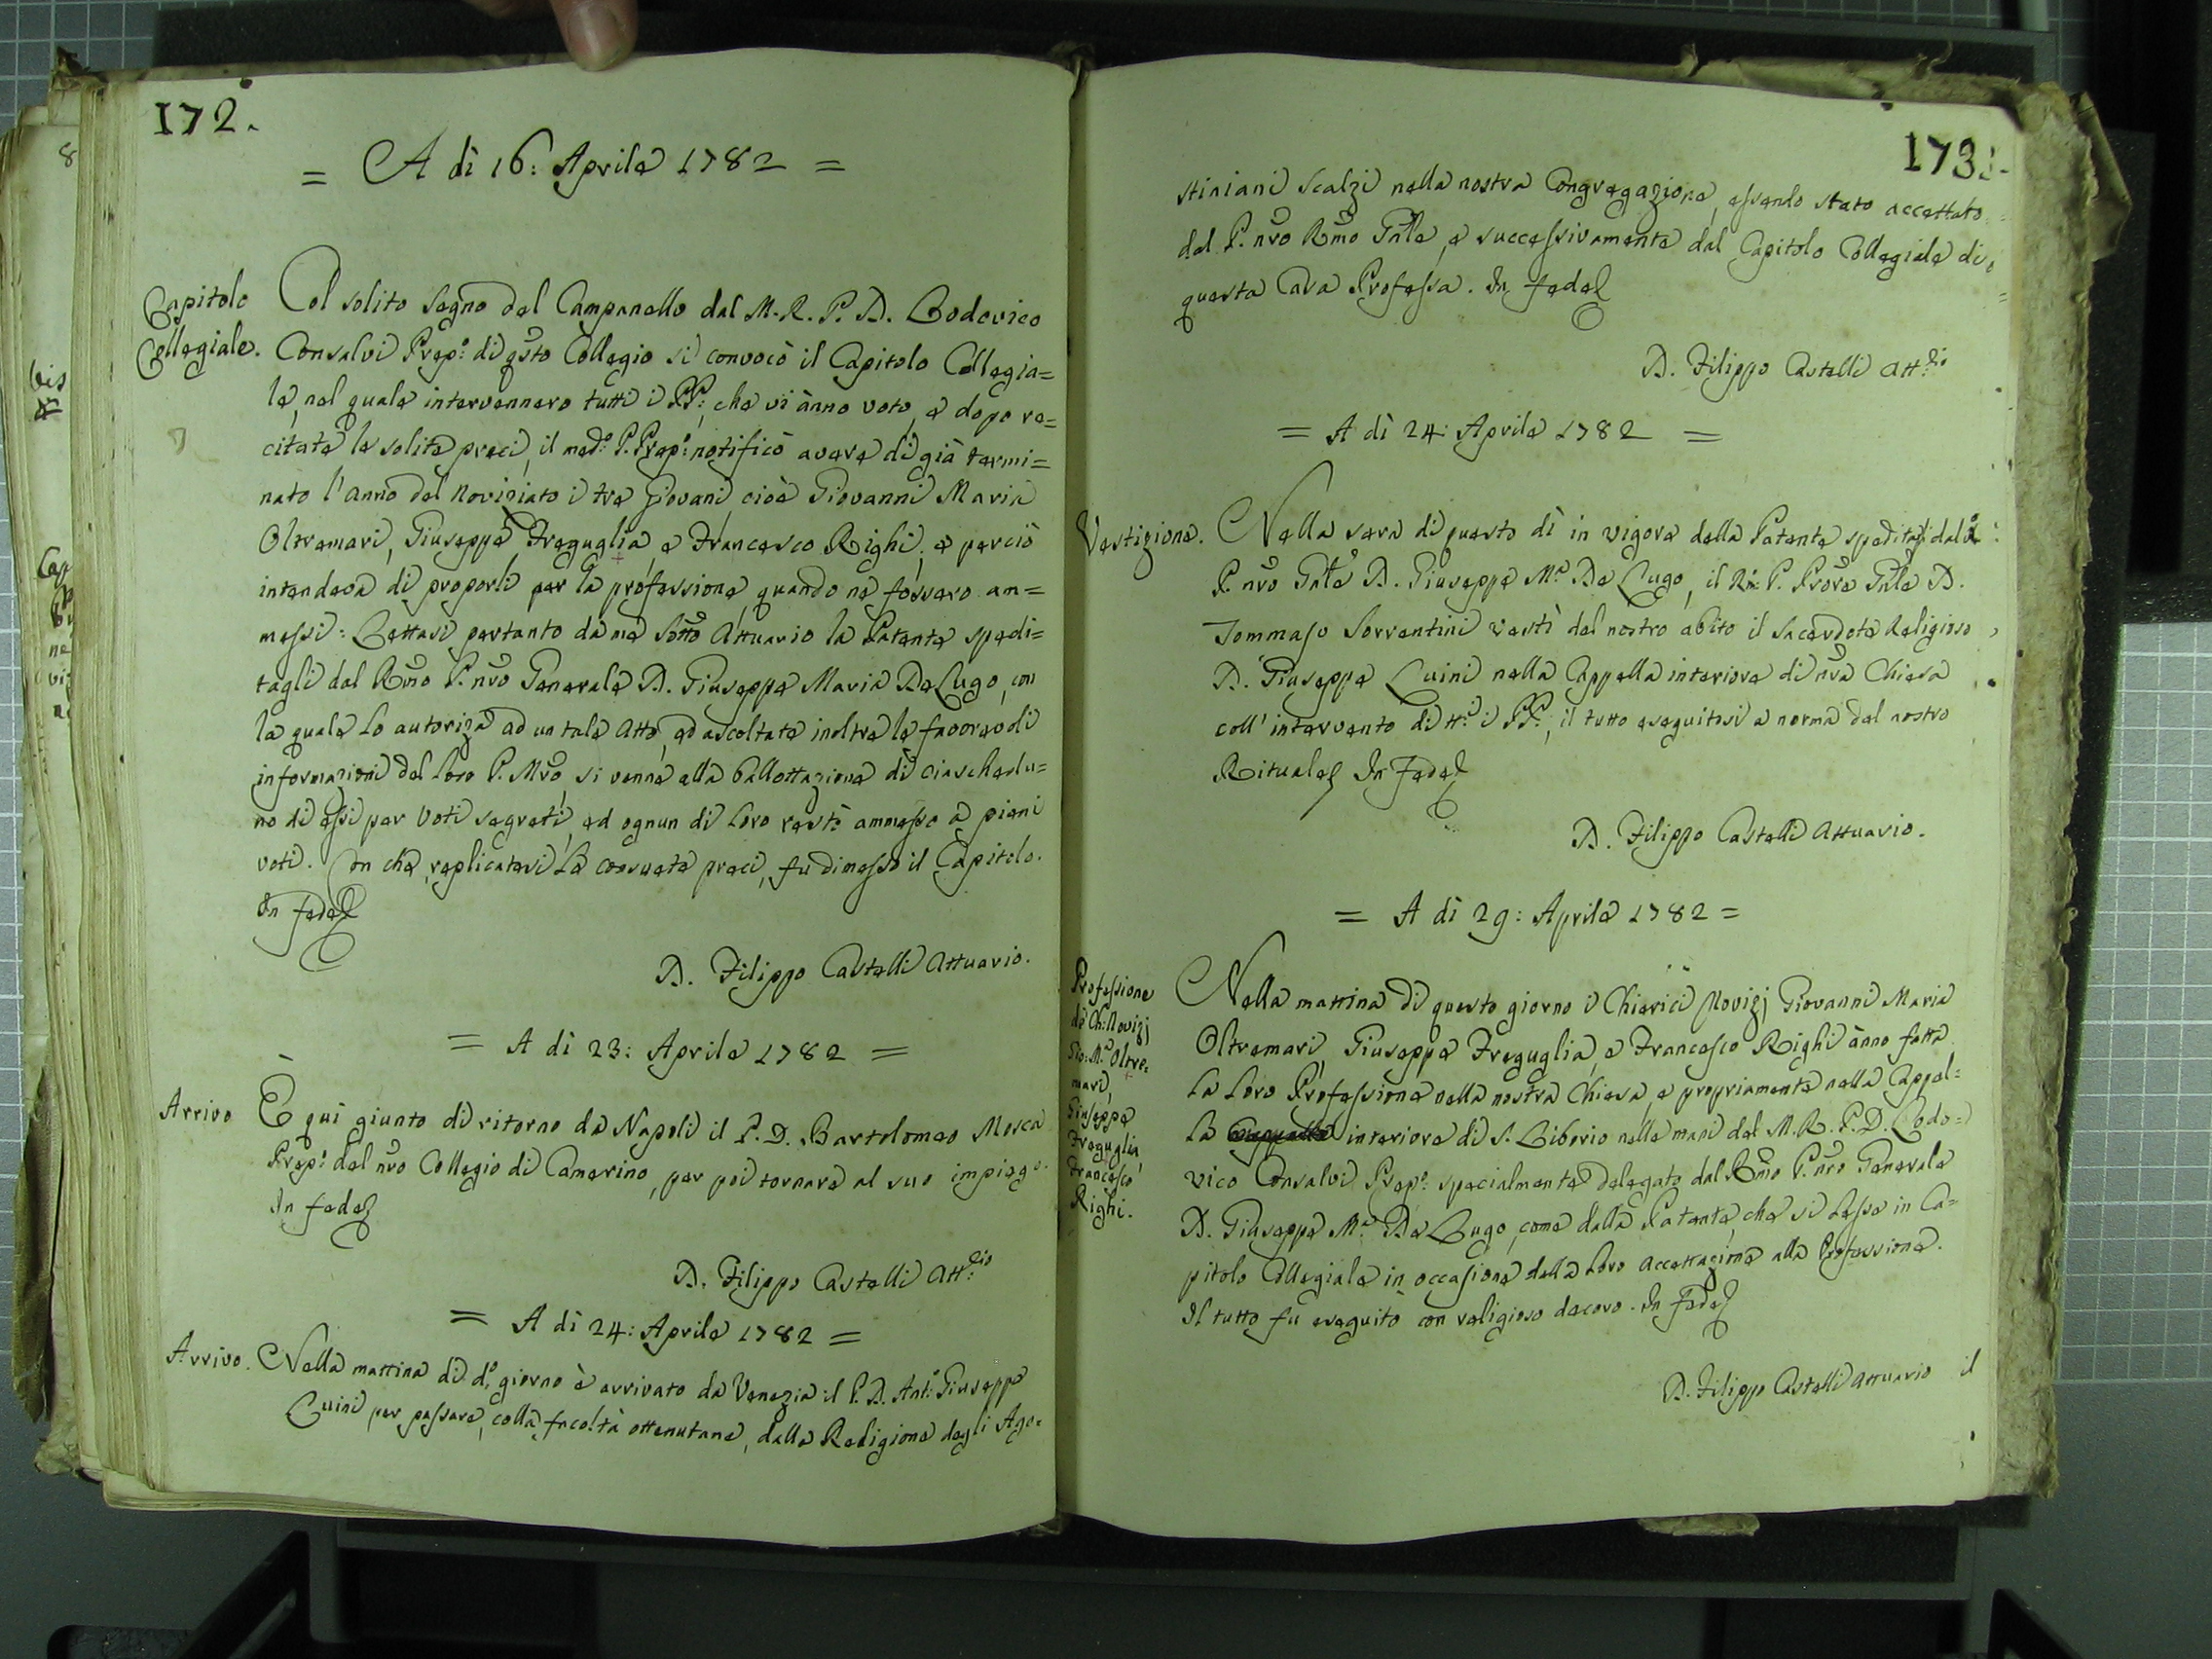 172.
= A dì 16: Aprile 1782 =
Capitolo
Collegiale.
Col solito segno del Campanello dal M. R. P. D. Lodovico
Consalvi Prep.o di qsto Collegio si convocò il Capitolo Collegia=
le, nel quale intervennero tutti i PP: che vi ànno voto, e dopo re=
citate le solite preci, il med.o P. Prep.o notificò avere di già termi=
nato l'anno del Noviziato i tre Giovani, cioè Giovanni Maria
Oltremari, Giuseppe Freguglia e Francesco Righi, e perciò
intendeva di proporli per la professione, quando ne fossero am=
messi: Lettasi pertanto da me Sotto Attuario la Patente spedi=
tagli dal Rmo P. nro Generale D. Giuseppe Maria De Lugo, con
la quale lo autoriza ad un tale atto, ed ascoltate inoltre le favorevoli
informazioni del loro P. Mro, si venne alla ballottazione di ciaschedu=
no di essi per Voti segreti, ed ognun di loro restò ammesso a pieni
voti. Con che, replicatesi le consuete preci, fu dimesso il Capitolo.
In fede
D. Filippo Castelli Attuario.
= A dì 23: Aprile 1782 =
Arrivo
È qui giunto di ritorno da Napoli il P. D. Bartolomeo Mosca
Prep.o del nro Collegio di Camerino, per poi tornare al suo impiego.
In fede
D. Filippo Castelli Att.rio
= A dì 24: Aprile 1782 =
Arrivo.
Nella mattina di d.o giorno è arrivato da Venezia il P. D. Ant.o Giuseppe
Luini per passare, colla facoltà ottenutane, dalla Religione degli Ago=
173.
stiniani Scalzi nella nostra Congregazione, essendo stato accettato
dal P. nro Rmo Gnle, e successivamente dal Capitolo Collegiale di
questa Casa Professa. In fede
D. Filippo Castelli Att.rio
= A dì 24: Aprile 1782 =
Vestizione.
Nella sera di questo dì in vigore della Patente speditasi dal
P. nro Gnle D. Giuseppe M.a De Lugo, il P. Prore Gnle D.
Tommaso Sorrentini vestì del nostro abito il Sacerdote Religioso
D. Giuseppe Luini nella Cappella interiore di nra Chiesa
coll' intervento di tt.i i PP., il tutto eseguitosi a norma del nostro
Rituale. In Fede
D. Filippo Castelli Attuario.
= A dì 29: Aprile 1782 =
Professione
de Ch: Novizj
Gio: M.a Oltre=
mari,
Giuseppe
Freguglia
Francesco
Righi.
Nella mattina di questo giorno i Chierici Novizj Giovanni Maria
Oltremari, Giuseppe Freguglia, e Francesco Righi ànno fatta
la loro Professione nella nostra Chiesa, e propriamente nella Cappel=
la interiore di S. Liborio nelle mani del M. R. P. D. Lodo=
vico Consalvi Prep.o specialmente delegato dal Rmo P. nro Generale
D. Giuseppe M.a De Lugo, come dalla Patente, che si lesse in Ca=
pitolo Collegiale in occasione della loro accettazione alla Professione.
Il tutto fu eseguito con religioso decoro. In Fede
D. Filippo Castelli Attuario
il